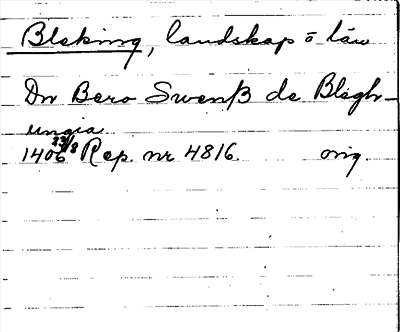 Bleking, landskap o län
Dn Bero Swenß de Blegh-
ungia
1406 23/8 Rep. nr 4816. orig.